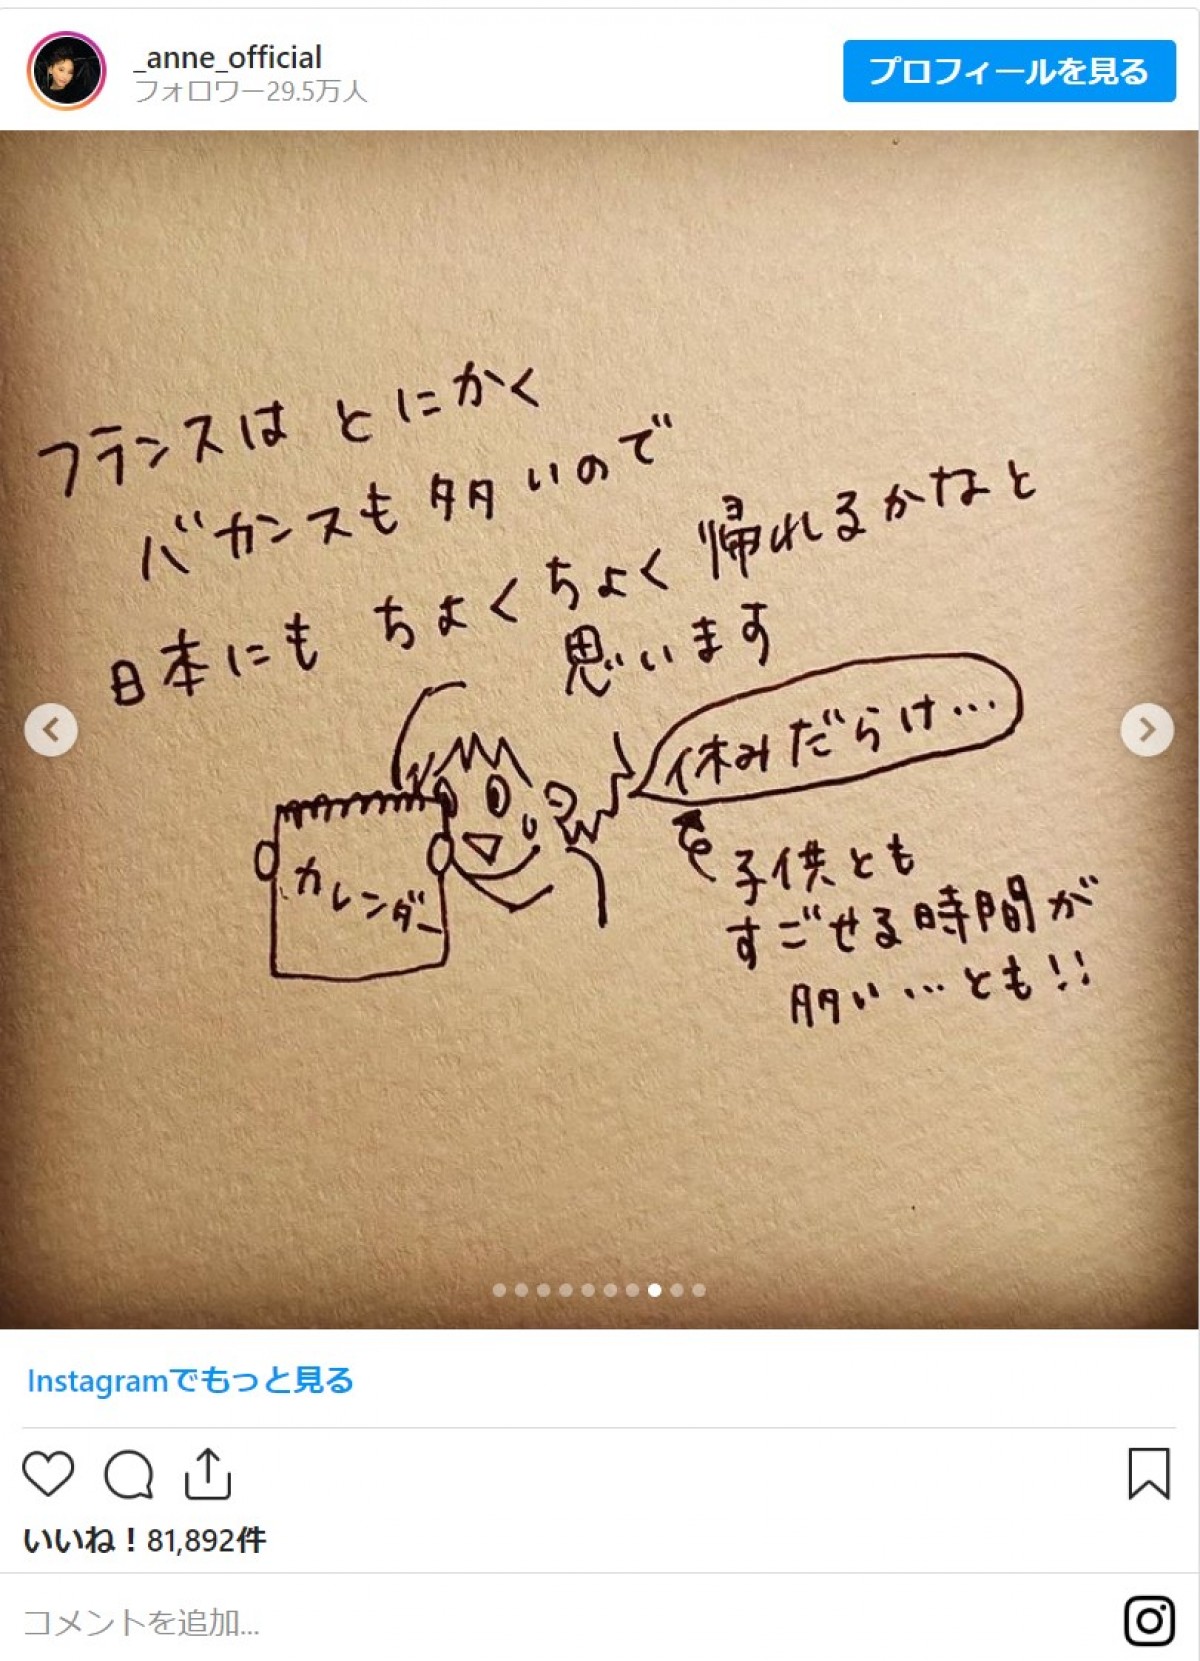 _anne_official
フォロワー29.5万人
プロフィールを見る
フランスは とにかく
バカンスも多いので
日本にも ちょくちょく帰れるかなと
思います
休みだらけ…
カレンダー
子供とも
すごせる時間が
多い…とも!!
Instagramでもっと見る
いいね！81,892件
コメントを追加...